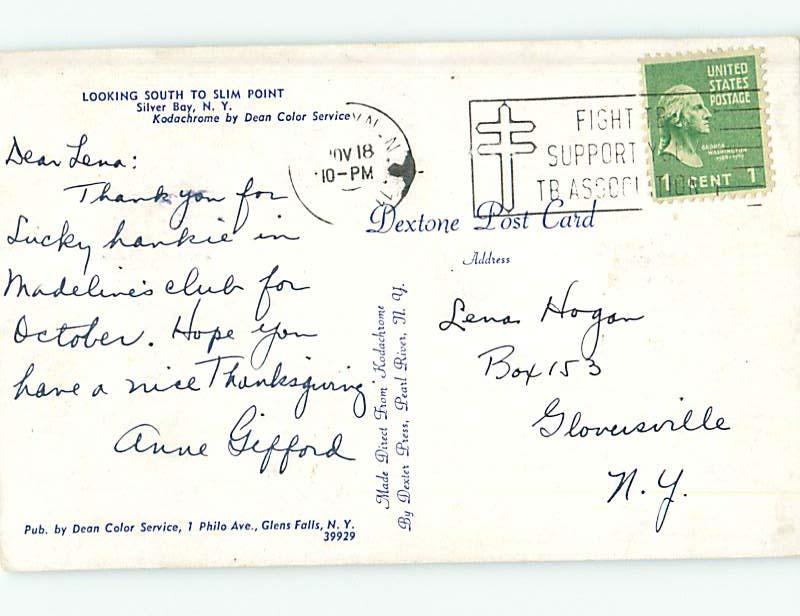 LOOKING SOUTH TO SLIM POINT
Silver Bay, N. Y.
Kodachrome by Dean Color Service
Dear Lena:
Thank you for
Lucky hankie in
Madeline's club for
October. Hope you
have a nice Thanksgiving
Anne Gifford
Pub. by Dean Color Service, 1 Philo Ave., Glens Falls, N. Y.
39929
Made Direct From Kodachrome
By Dexter Press, Pearl River, N. Y.
NOV 18
10-PM
FIGHT
SUPPORT
TB ASSOCIATION
UNITED
STATES
POSTAGE
GEORGE
WASHINGTON
1 CENT 1
Dextone Post Card
Address
Lena Hogan
Box 153
Gloversville
N.Y.